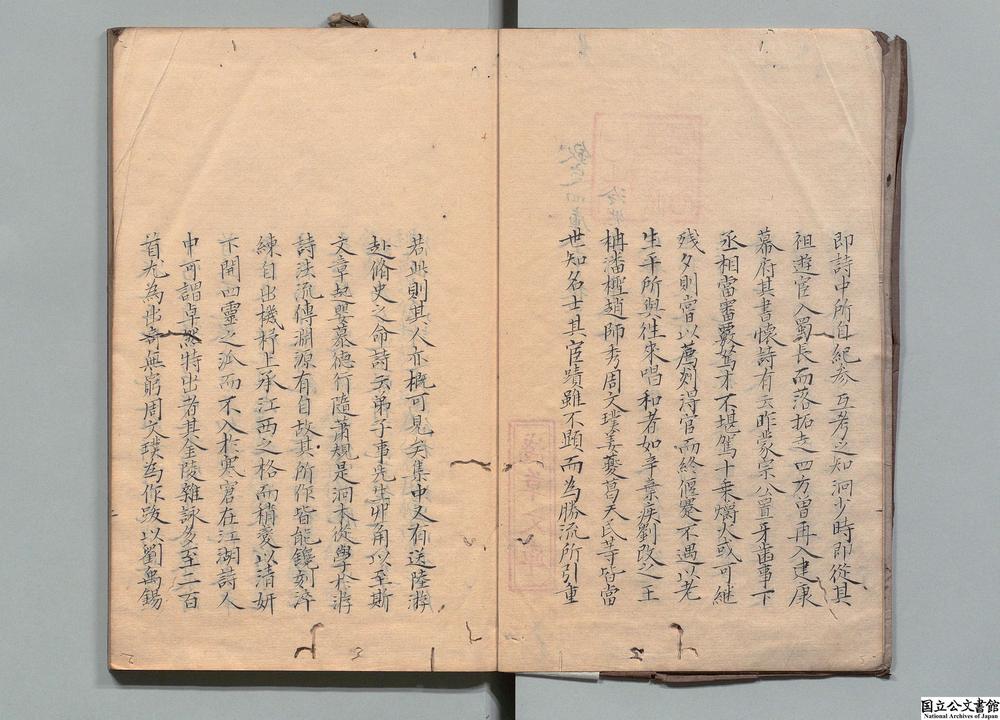 即詩中所自紀參互考之知泂少時即從其
祖遊宦入蜀長而落拓走四方曽再入建康
幕府其書懷詩有云昨蒙宗公置牙齒事下
丞相當審覈駑才不堪駕十乗爝火或可継
残夕則嘗以薦剡得官而終偃蹇不遇以老
生平所與徃來唱和者如辛棄疾劉改之王
柟潘檉趙師秀周文璞姜夔葛天民等皆當
世知名士其宦蹟雖不顕而為勝流所引重
若此則其人亦概可見矣集中又有送陸游
赴脩史之命詩云弟子事先生丱角以至斯
文章起嬰慕徳行隨蕭規是泂本從學於游
詩法流傳淵源有自故其所作皆能鑱刻淬
練自出機杼上承江西之格而稍変以清妍
下開四霊之派而不入於寒窘在江湖詩人
中可謂卓然特出者其金陵雜詠多至二百
首尤為出竒無窮周文璞為作跋以劉禹錫
国立公文書館
National Archives of Japan